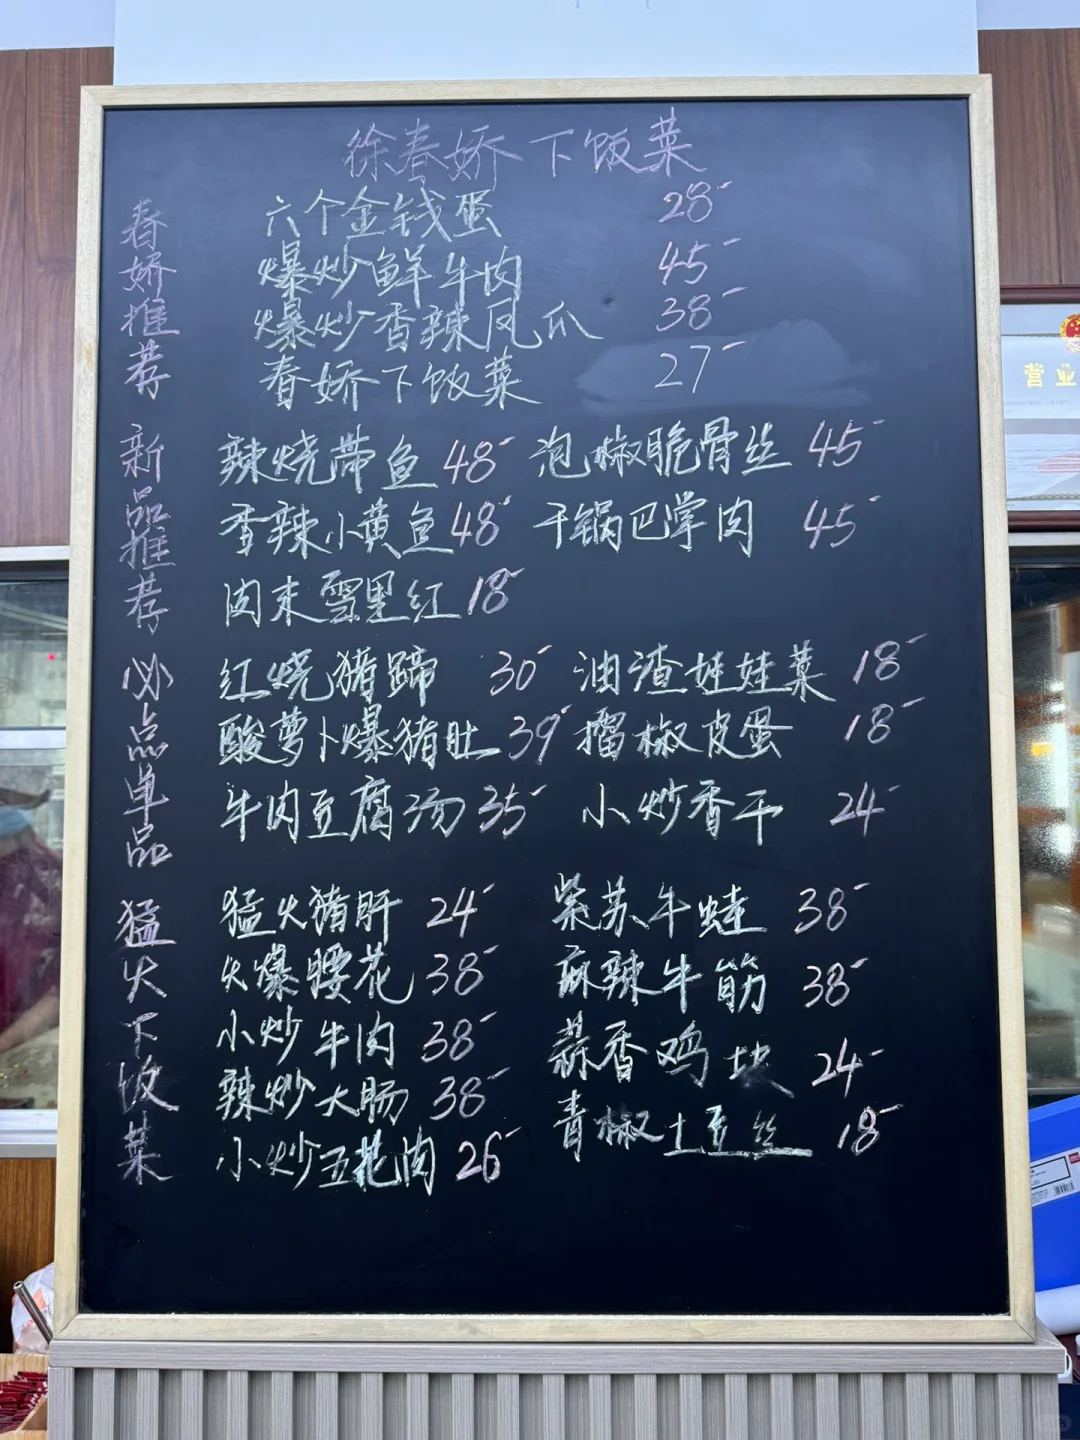 徐春娇下饭菜
春娇推荐
六个金钱蛋 28-
爆炒鲜牛肉 45-
爆炒香辣凤爪 38-
春娇下饭菜 27-
新品推荐
辣烧带鱼 48- 泡椒脆骨丝 45-
香辣小黄鱼 48- 干锅巴掌肉 45-
肉末雪里红 18-
必点单品
红烧猪蹄 30- 油渣娃娃菜 18-
酸萝卜爆猪肚 39- 擂椒皮蛋 18-
牛肉豆腐汤 35- 小炒香干 24-
猛火下饭菜
猛火猪肝 24- 紫苏牛蛙 38-
火爆腰花 38- 麻辣牛筋 38-
小炒牛肉 38- 蒜香鸡块 24-
辣炒大肠 38- 青椒土豆丝 18-
小炒五花肉 26-
营业